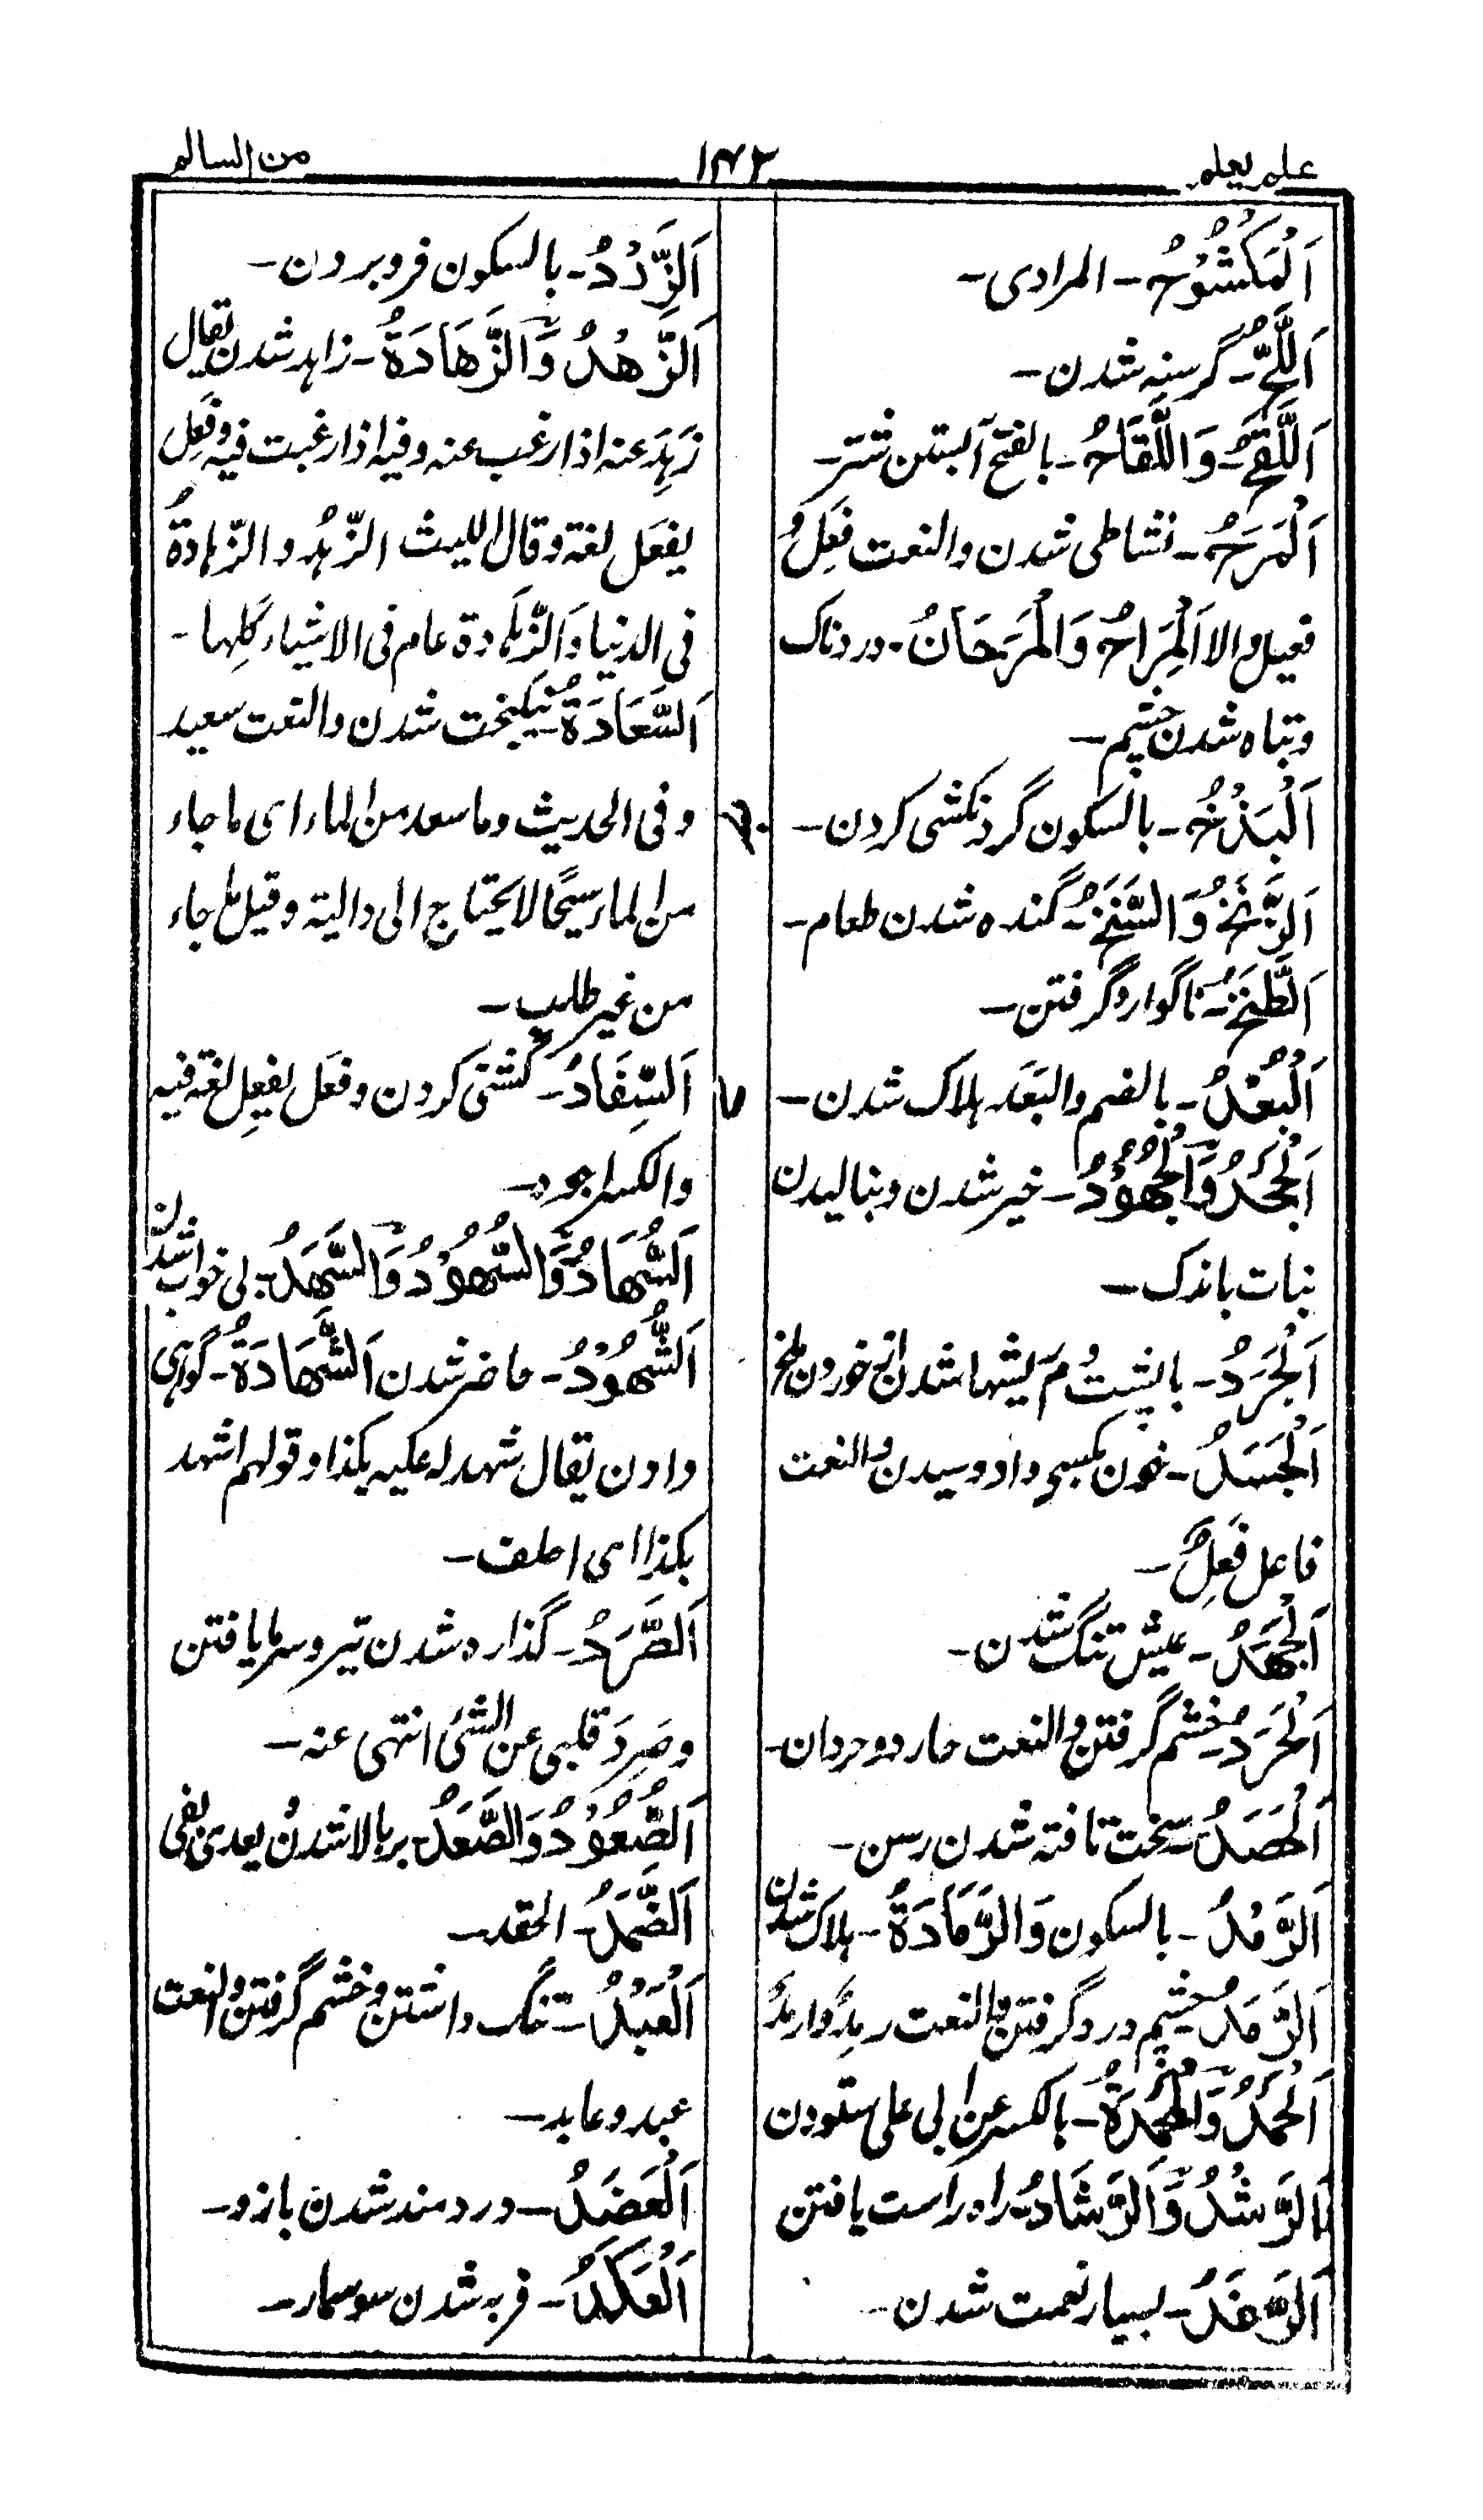 علم یعلم
۱۴۲
من السالم
اَلْمَكْشُوْحُ - المرادی -
اَللَّحُّ - گرسنه شدن -
اَللَّقَحُ - وَاللَّقَاحُ - بالفتح آبستن شتر -
اَلْمَرَحُ - نشاطی شدن والنعت فَعِلٌ و
فعیل والا اَلْمِرَاحُ وَالْمَرَحَانُ - دردناک
وتباه شدن چشم -
اَلْبَذْخُ - بالسکون گردنکشی کردن -
اَلزَّنَخُ وَالسَّنَخُ - گنده شدن طعام -
اَلطَّنَخُ - ناگوارد گرفتن -
اَلْبُعْدُ - بالضم والبَعَد هلاک شدن -
اَلْجَحَدُ وَالْجُحُوْدُ - خیر شدن و بنالیدن
نبات باندک -
اَلْجَرَدُ - با پشت شدن از خوردن ملخ
اَلْجَسَدُ - خون بکسی وا دوسیدن والنعت
فاعل فَعِلٌ -
اَلْجَهَدُ - عیش تنگ شدن -
اَلْحَرَدُ - خشم گرفتن والنعت حارد وحردان -
اَلْحَصَدُ - سخت تافته شدن رسن -
اَلرَّمْدُ - بالسکون وَالرَّمَادَةُ - هلاک شدن
اَلرَّمَدُ - چشم درد گرفتن والنعت رمِدٌ وارمدُ
اَلْحَمْدُ وَالْمَحْمِدَةُ - بالکسر عن ابی علی ستودن
اَلرَّشَدُ وَالرَّشَادُ - راه راست یافتن
اَلرَّغَدُ - بسیار نعمت شدن -
اَلزَّرْدُ - بالسکون فرو بردن -
اَلزُّهْدُ وَالزَّهَادَةُ - زاهد شدن یقال
زَهِدَ عنه اذا رغب عنه وفیه اذا رغبت فیه وفَعِل
یفعَل لغة وقال اللیث الزّهدُ والزّهادةُ
فی الدنیا وَالزَّهَادة عام فی الاشیاء کلها -
اَلسَّعَادَةُ - نیکبخت شدن والنعت سعید
و فی الحدیث وما سعد من الماء ای ما جاء
من الماء سیحًا لا یحتاج الی دالیة وقیل ما جاء
من غیر طلب -
۷ اَلسِّفَادُ - گشنی کردن وفعَل یفعِل لغة فیه
والکسر اجود -
اَلسُّهَادُ وَالسُّهُوْدُ وَالسَّهَدُ - بی خواب شدن
اَلشُّهُوْدُ - حاضر شدن اَلشَّهَادَةُ - گواهی
دادن یقال شهد له علیه بکذا وقولهم اشهد
بکذا ای احلف -
اَلصَّرَدُ - گذاره شدن تیر وسرما یافتن
وصَرِدَ قلبی عن الشئ انتهی عنه -
اَلصُّعُوْدُ وَالصَّعَدُ - بر بالا شدن ویعدی بفی
اَلضَّمَدُ - الحقد -
اَلْعَبَدُ - تنگ داشتن وخشم گرفتن والنعت
عبد وعابد -
اَلْعَضَدُ - دردمند شدن بازو -
اَلْعَكَدُ - فربه شدن سوسمار -